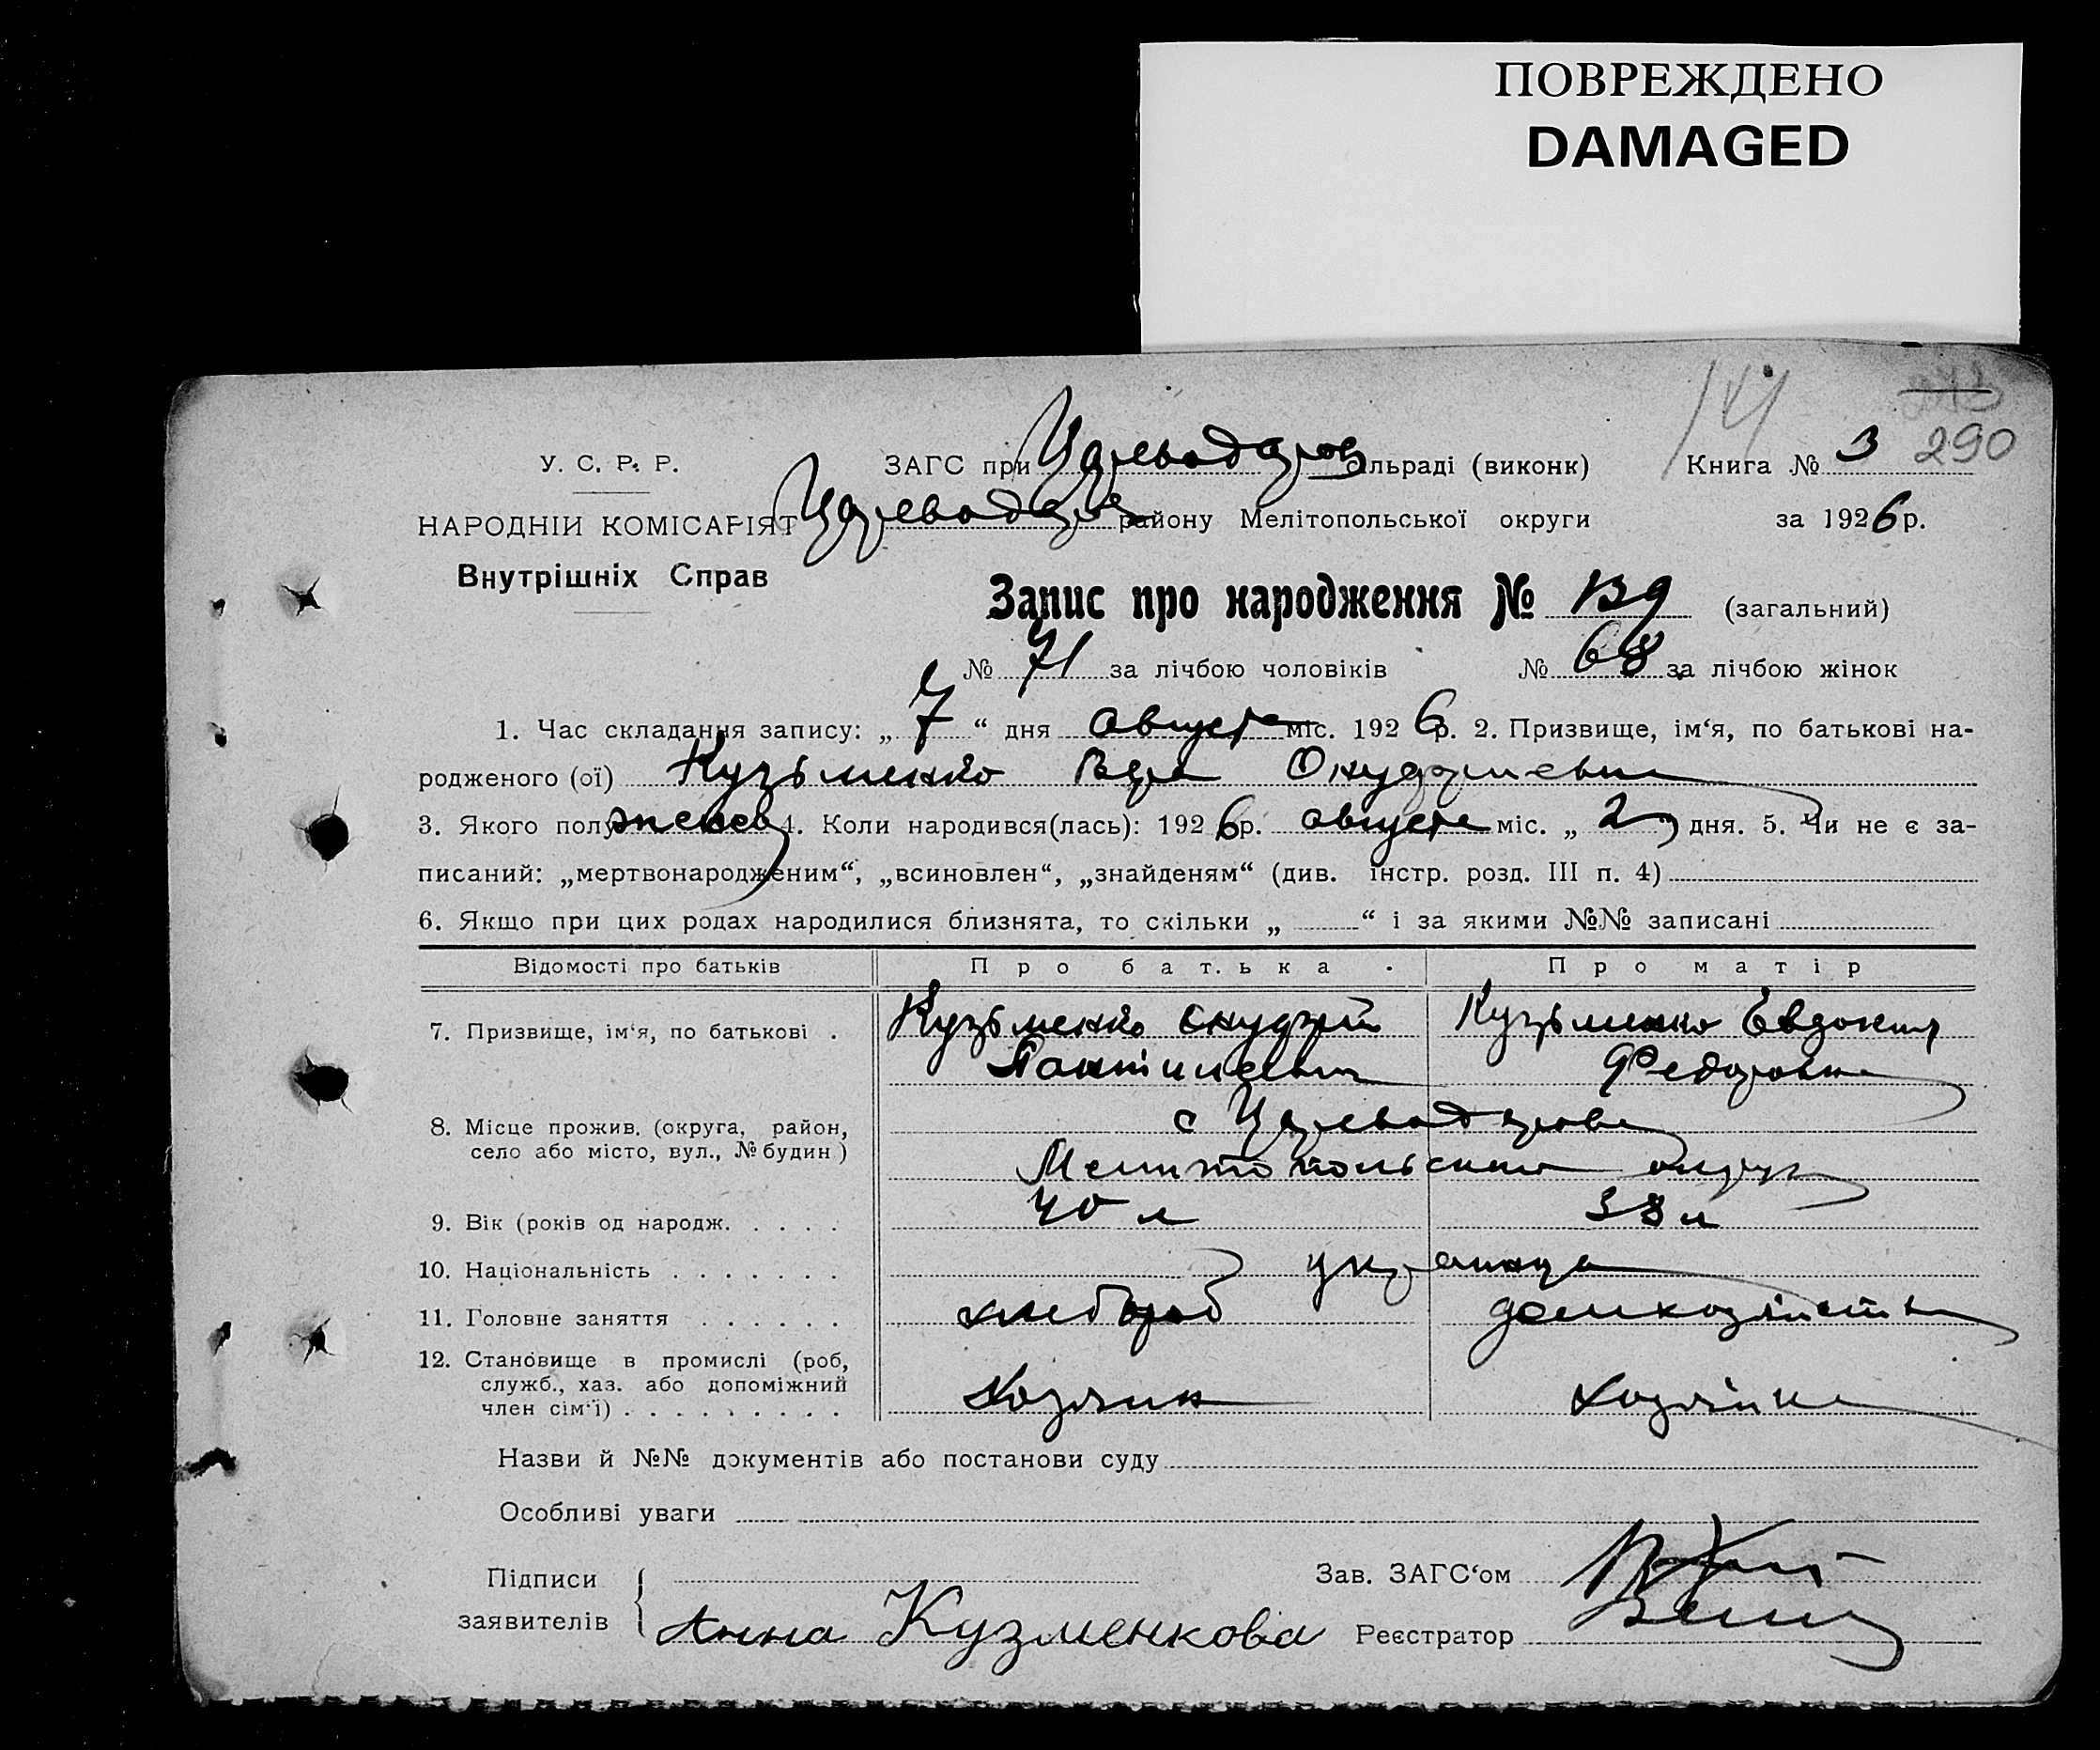 ПОВРЕЖДЕНО
DAMAGED
14
290
У. С. Р. Р.
ЗАГС при Цареводаров ільраді (виконк) Книга № 3
НАРОДНІИ КОМІСАРІЯТ
Цареводаров району Мелітопольської округи за 1926 р.
Внутрішніх Справ
Запис про народження № 139 (загальний)
№ 71 за лічбою чоловіків № 68 за лічбою жінок
1. Час складання запису: „ 7 “ дня августа міс. 1926 р. 2. Призвище, ім‘я, по батькові на-
родженого (ої) Кузьменко Вера
3. Якого полу женск 4. Коли народився(лась): 1926 р. августа міс. „ 2 “ дня. 5. Чи не є за-
писаний: „мертвонародженим“, „всиновлен“, „знайденям“ (див. інстр. розд. III п. 4)
6. Якщо при цих родах народилися близнята, то скільки „ “ і за якими №№ записані
Відомості про батьків Про батька Про матір
7. Призвище, ім‘я, по батькові . Кузьменко Кузьменко Евдокия
Федоровна
8. Місце прожив. (округа, район,
село або місто, вул., № будин)
с Цареводарова
Мелитопольской округи
9. Вік (років од народж. . . . . 40 л 38 л
10. Національність . . . . . . . украинцы
11. Головне заняття . . . . . . хлебороб домхозяйства
12. Становище в промислі (роб,
служб., хаз. або допоміжний
член сім‘ї) . . . . . . . . .
Хозяин Хозяйка
Назви й №№ документів або постанови суду
Особливі уваги
Підписи
заявителів
Зав. ЗАГС‘ом
Анна Кузменкова Реєстратор